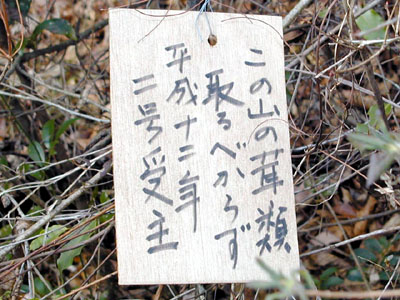 この山の茸類
取るべからず
平成十二年
二号受主